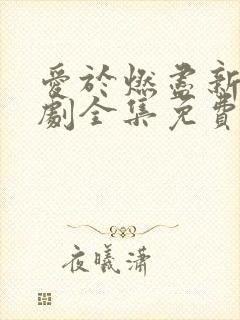 愛於燃盡新
劇全集免費
夜曦瀟